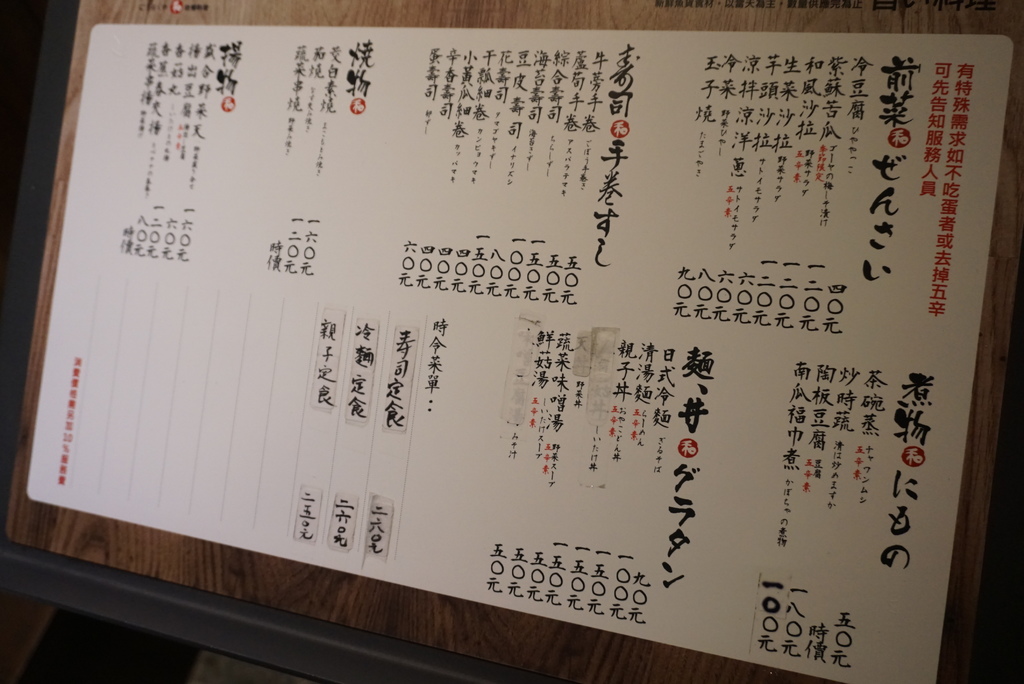 有特殊需求如不吃蛋者或去掉五辛
可先告知服務人員
前菜 和 ぜんさい
冷豆腐 ひややっこ 四〇元
紫蘇苦瓜 季節限定 ゴーヤの梅しそ漬け 一二〇元
和風沙拉 野菜サラダ 五辛素 一二〇元
生菜沙拉 野菜サラダ 一二〇元
芋頭沙拉 サトイモサラダ 六〇元
涼拌洋蔥 サトイモサラダ 五辛素 六〇元
冷菜 野菜ひやし 八〇元
玉子燒 たまごやき 九〇元
壽司 和 手巻すし
牛蒡手卷 ごぼう手巻き 五〇元
蘆筍手卷 アスパラテマキ 五〇元
綜合壽司 ちらしずし 一五〇元
海苔壽司 海苔ずし 一〇〇元
豆皮壽司 イナリズシ 八〇元
花壽司 一五〇元
干瓢細卷 カンピョウマキ 四〇元
小黃瓜細卷 カッパマキ 四〇元
辛香壽司 四〇元
蛋壽司 六〇元
燒物 和
茭白素燒 一六〇元
茄燒 一二〇元
蔬菜串燒 野菜串焼き 時價
揚物 和
盛合野菜天 一六〇元
揚出豆腐 六〇元
香菇丸 一二〇元
香蕉春捲 八〇元
蔬菜串揚 時價
煮物 和 にもの
茶碗蒸 チャワンムシ 五辛素 五〇元
炒時蔬 時價
陶板豆腐 五辛素 一八〇元
南瓜福巾煮 かぼちゃの煮物 一〇〇元
麵、丼 和 グラタン
日式冷麵 ざるそば 九〇元
清湯麵 らーめん 五辛素 一〇〇元
親子丼 おやこどん丼 五辛素 一五〇元
しいたけ丼 一五〇元
天 野菜丼 一五〇元
蔬菜味噌湯 野菜スープ 五辛素 五〇元
鮮菇湯 しいたけスープ 五辛素 五〇元
みそ汁 五〇元
時令菜單：
壽司定食 二六〇元
冷麵定食 二六〇元
親子定食 二五〇元
消費價格需另加10％服務費